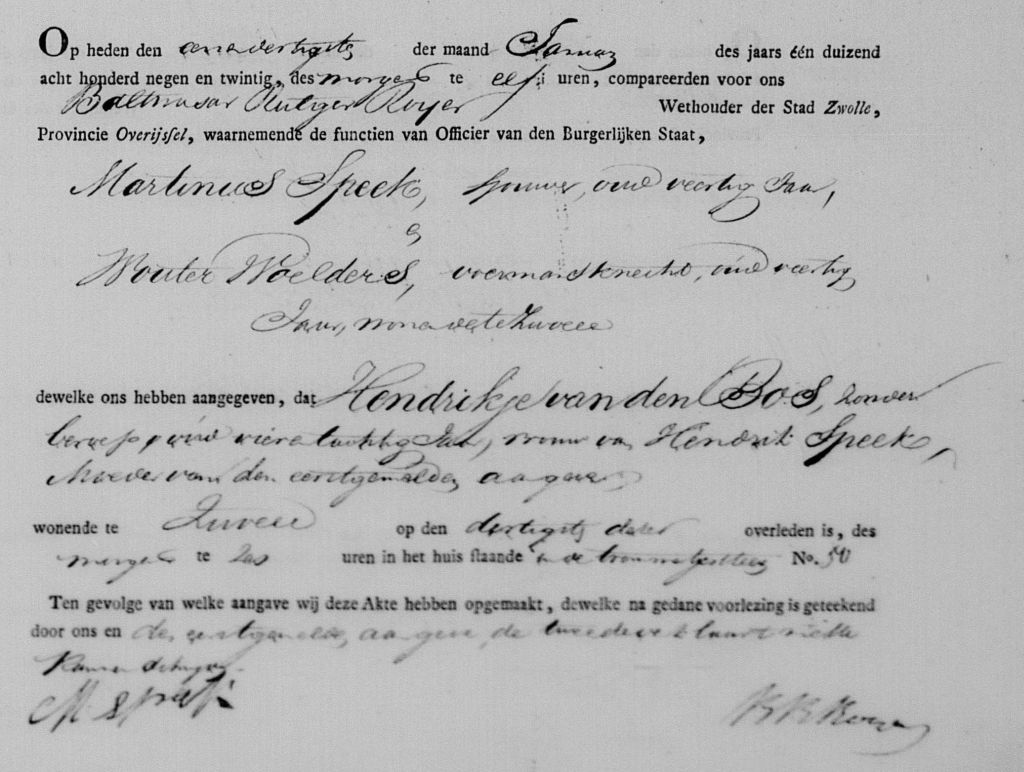 Op heden den eenendertigste der maand Januay des jaars één duizend
acht honderd negen en twintig, des morgens te elf uren, compareerden voor ons
Balthasar Rutger Royer Wethouder der Stad Zwolle,
Provincie Overijssel, waarnemende de functien van Officier van den Burgerlijken Staat,
Martinus Speek, sjouwer, oud veertig Jaar,
en
Wouter Woelders, voermansknecht, oud veertig
Jaar, wonende te Zwolle
dewelke ons hebben aangegeven, dat Hendrikje van den Bos, zonder
beroep, oud vierentachtig Jaar, vrouw van Hendrik Speek,
Moeder van den eerstgemelden aangever
wonende te Zwolle op den dertigste dezer overleden is, des
morgens te zes uren in het huis staande in de No. 50
Ten gevolge van welke aangave wij deze Akte hebben opgemaakt, dewelke na gedane voorlezing is geteekend
door ons en den eerstgemelde aangever, de tweede verklaarde niet te
kunnen schrijven.
M Speek
B R Royer